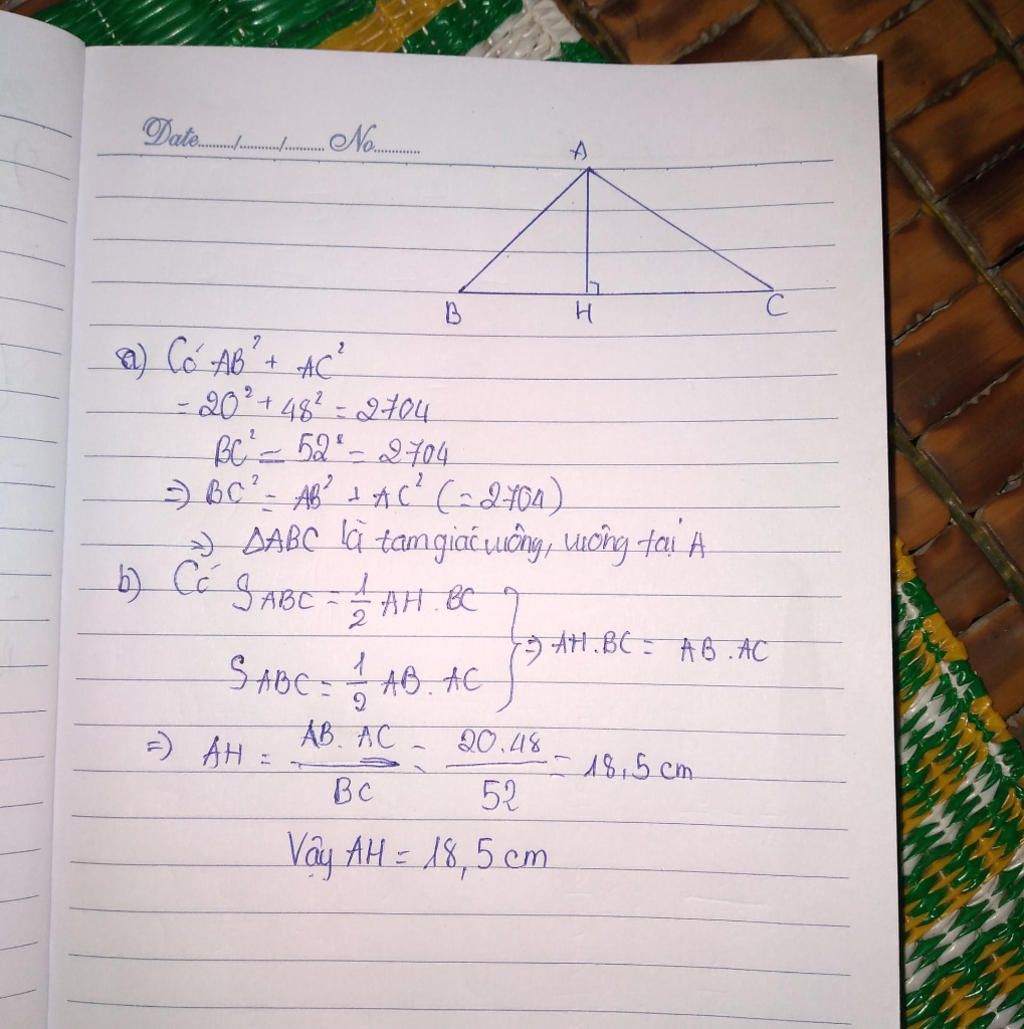 Date........./........./......... No...........
A
B H C
a) Có AB² + AC²
= 20² + 48² = 2704
BC² = 52² = 2704
=> BC² = AB² + AC² (= 2704)
=> ΔABC là tam giác vuông, vuông tại A
b) Có S ABC = 1/2 AH . BC
S ABC = 1/2 AB . AC } => AH . BC = AB . AC
=> AH = AB . AC / BC = 20 . 48 / 52 = 18,5 cm
Vậy AH = 18,5 cm